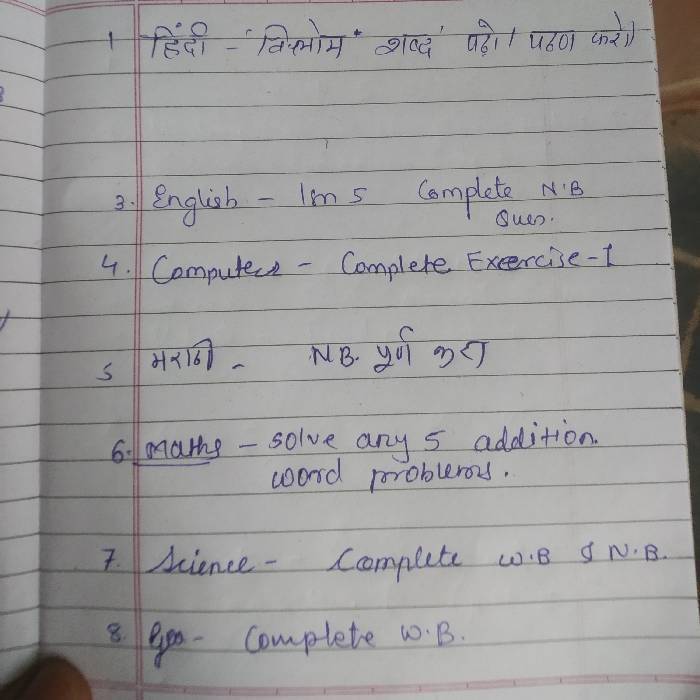 1 हिंदी - विलोम शब्द पढ़ो। पठण करो।
3. English - Im 5 Complete N.B
Ques.
4. Computer - Complete Exercise-I
5 मराठी - N.B. पूर्ण करा
6. Maths - solve any 5 addition.
word problems.
7. Science - Complete W.B & N.B.
8. Geo - Complete W.B.